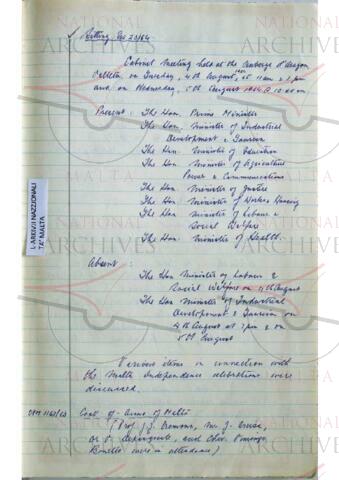 Sitting No 23/64
Cabinet Meeting held at the Auberge d'Aragon
Valletta on Tuesday, 4th August, at 11 am & 5 pm
and on Wednesday, 5th August 1964 @ 10.00 am
Present : The Hon. Prime Minister
The Hon. Minister of Industrial
Development & Tourism
The Hon. Minister of Education
The Hon. Minister of Agriculture
Power & Communications
The Hon. Minister of Justice
The Hon. Minister of Works & Housing
The Hon. Minister of Labour &
Social Welfare
The Hon. Minister of Health.
Absent :
The Hon Minister of Labour &
Social Welfare on 4th August
The Hon Minister of Industrial
Development & Tourism on
4th August at 5 pm & on
5th August
Various items in connection with
the Malta Independence celebrations were
discussed.
OPM 1163/63 Coat of Arms of Malta
(Prof. J. Cremona, Mr. J.
Dr. and Chev.
were in attendance)
L-ARKIVJI NAZZJONALI
TA' MALTA
NATIONAL
ARCHIVES